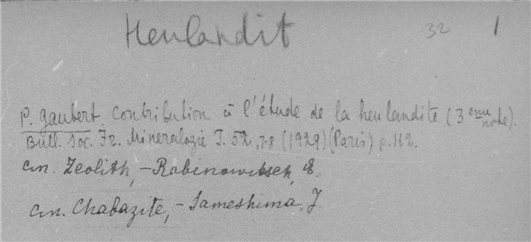 Heulandit 32 1
P. Gaubert. Contribution à l'étude de la heulandite (3 eme note).
Bull. Soc. Fr. Mineralogie T. 52, 7-8 (1929) (Paris) p. 162.
см. Zeolith, - Rabinowitsch, E.
см. Chabazite, - Sameshima, J.